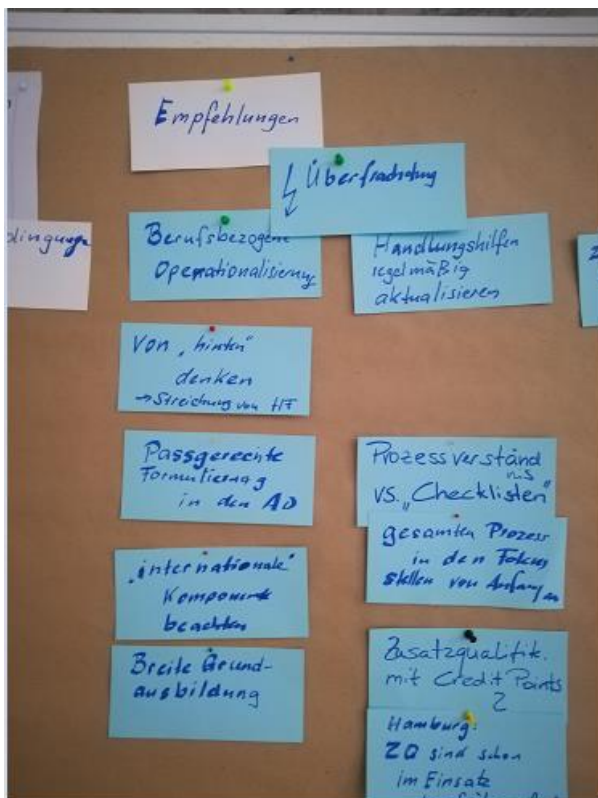 Empfehlungen
Überfrachtung
dingunge
Berufsbezogene
Operationalisierung
Handlungshilfen
regelmäßig
aktualisieren
Von "hinten"
denken
→ Streichung von HF
Passgerechte
Formulierung
in den AO
Prozessverständ
nis
vs. "Checklisten"
gesamten Prozess
in den Fokus
stellen von Anfang an
"internationale"
Komponente
beachten
Breite Grund-
ausbildung
Zusatzqualifik.
mit Credit Points
Hamburg:
ZQ sind schon
im Einsatz